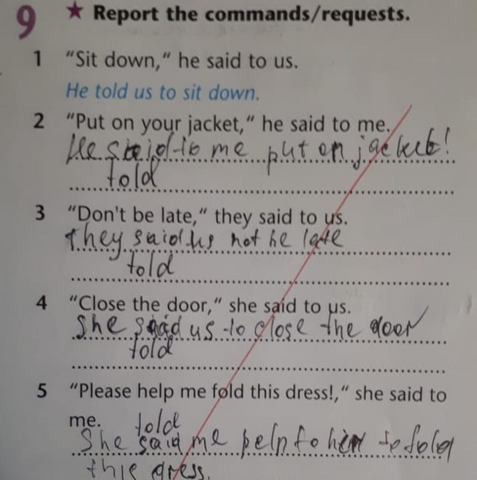 9 ★ Report the commands/requests.
1 “Sit down,“ he said to us.
He told us to sit down.
2 “Put on your jacket,“ he said to me.
He said to me put on jacket!
told
3 “Don't be late,“ they said to us.
They said us not be late
told
4 “Close the door,“ she said to us.
She said us to close the door
told
5 “Please help me fold this dress!,“ she said to
me. told
She said me help to to fold
this dress.